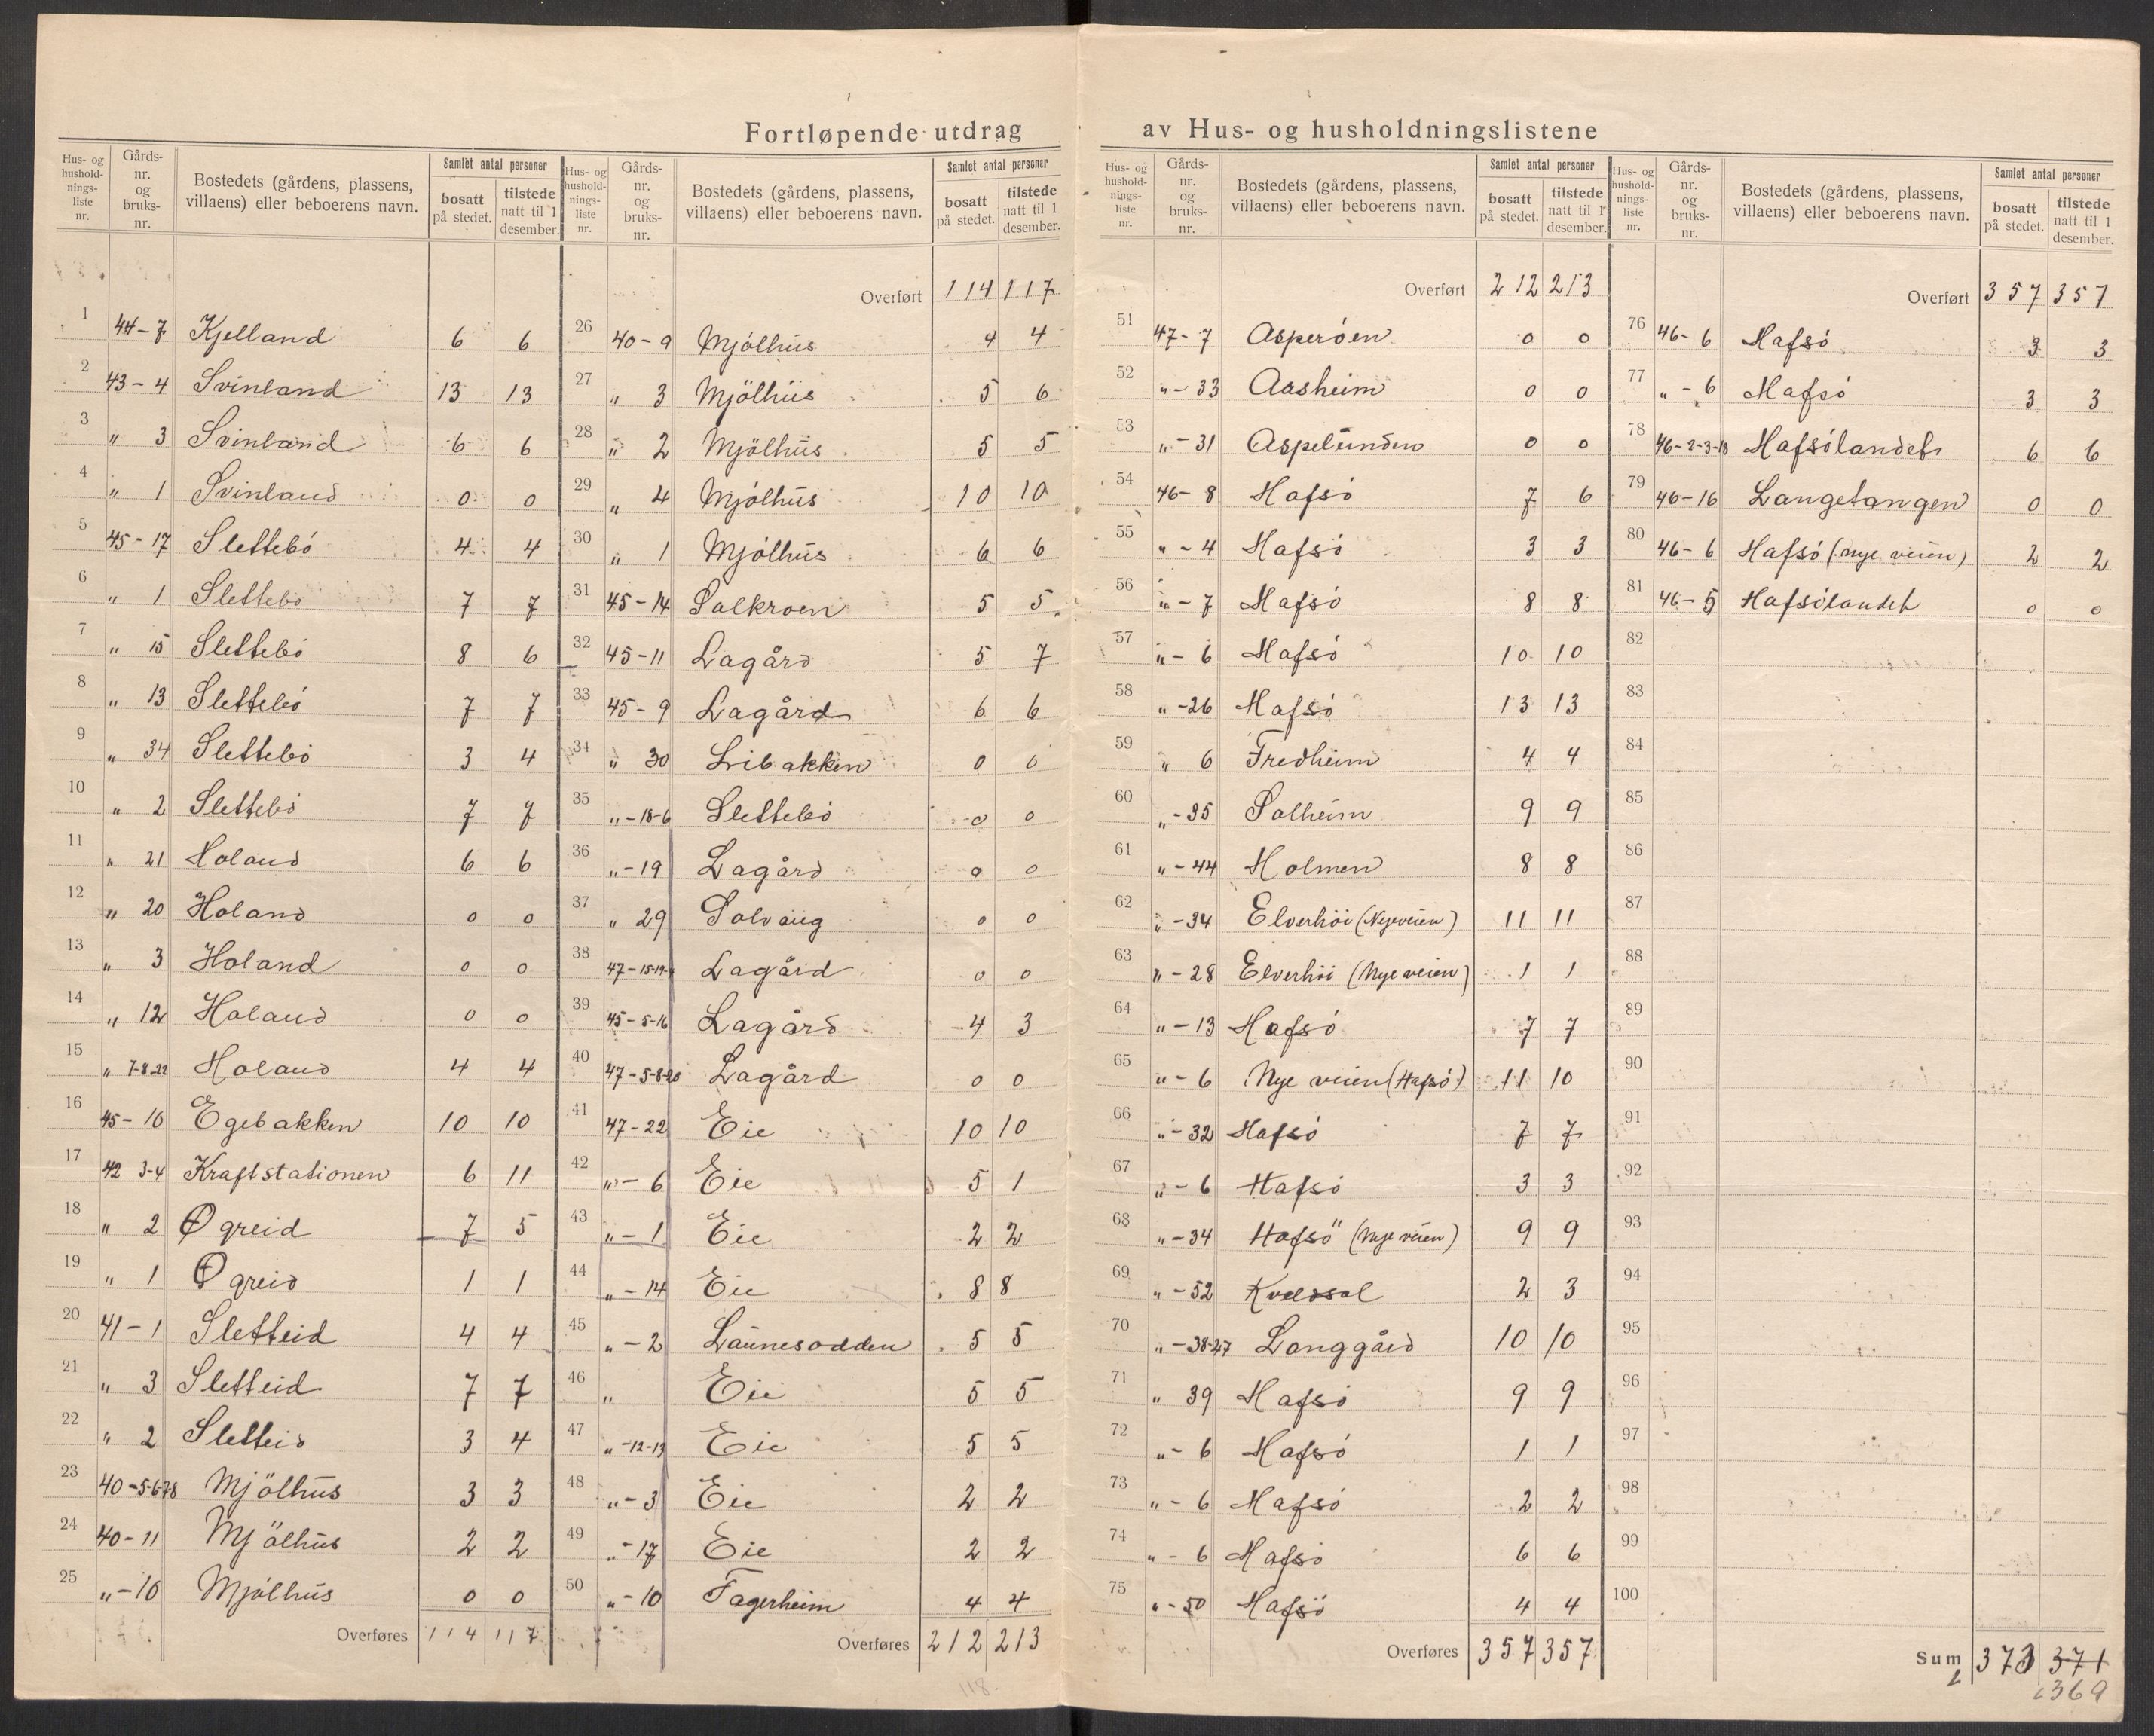 Fortløpende utdrag av Hus- og husholdningslistene
Hus- og hushold-nings-liste nr. | Gårds-nr. og bruks-nr. | Bostedets (gårdens, plassens, villaens) eller beboerens navn. | Samlet antal personer | bosatt på stedet. | tilstede natt til 1 desember.
1 44-7 Kjelland 6 6
2 43-4 Svinland 13 13
3 " 3 Svinland 6 6
4 " 1 Svinland 0 0
5 45-17 Slettebó 4 4
6 " 1 Slettebó 7 7
7 " 15 Slettebó 8 6
8 " 13 Slettebó 7 7
9 " 34 Slettebó 3 4
10 " 2 Slettebó 7 7
11 " 21 Holand 6 6
12 " 20 Holand 0 0
13 " 3 Holand 0 0
14 " 12 Holand 0 0
15 " 7-8-22 Holand 4 4
16 45-16 Egebakken 10 10
17 42 3-4 Kraftstationen 6 11
18 " 2 Øgreid 7 5
19 " 1 Øgreid 1 1
20 41-1 Sletteid 4 4
21 " 3 Sletteid 7 7
22 " 2 Sletteid 3 4
23 40-5-6-7-8 Mjölhus 3 3
24 40-11 Mjölhus 2 2
25 "-10 Mjólhus 0 0
Overføres 114 117
Hus- og hushold-nings-liste nr. | Gårds-nr. og bruks-nr. | Bostedets (gårdens, plassens, villaens) eller beboerens navn. | Samlet antal personer | bosatt på stedet. | tilstede natt til 1 desember.
Overført 114 117
26 40-9 Mjólhus 4 4
27 " 3 Mjölhus 5 6
28 " 2 Mjölhus 5 5
29 " 4 Mjólhus 10 10
30 " 1 Mjólhus 6 6
31 45-14 Solkroen 5 5
32 45-11 Lagård 5 7
33 45-9 Lagård 6 6
34 " 30 Libakken 0 0
35 "-18-6 Slettebó 0 0
36 "-19 Lagård 0 0
37 " 29 Solvang 0 0
38 47-15-19- Lagård 0 0
39 45-5-16 Lagård 4 3
40 47-5-8-20 Lagård 0 0
41 47-22 Eie 10 10
42 "-6 Eie 5 1
43 "-1 Eie 2 2
44 "-14 Eie 8 8
45 "-2 Launesodden 5 5
46 " Eie 5 5
47 "-12-13 Eie 5 5
48 "-3 Eie 2 2
49 "-17 Eie 2 2
50 "-10 Fagerheim 4 4
Overføres 212 213
118
Hus- og hushold-nings-liste nr. | Gårds-nr. og bruks-nr. | Bostedets (gårdens, plassens, villaens) eller beboerens navn. | Samlet antal personer | bosatt på stedet. | tilstede natt til 1 desember.
Overført 212 213
51 47-7 Asperóen 0 0
52 "-33 Aasheim 0 0
53 "-31 Aspelunden 0 0
54 46-8 Hafsó 7 6
55 "-4 Hafsó 3 3
56 "-7 Hafsó 8 8
57 "-6 Hafsó 10 10
58 "-26 Hafsó 13 13
59 " 6 Fredheim 4 4
60 "-35 Solheim 9 9
61 "-44 Holmen 8 8
62 "-34 Elverhöi (Nyeveien) 11 11
63 "-28 Elverhöi (Nye veien) 1 1
64 "-13 Hafsó 7 7
65 "-6 Nye veien (Hafsó) 11 10
66 "-32 Hafsó 7 7
67 "-6 Hafsó 3 3
68 "-34 Hafsö (Nye veien) 9 9
69 "-52 Kveldsol 2 3
70 "-38-27 Langgård 10 10
71 " 39 Hafsó 9 9
72 "-6 Hafsó 1 1
73 "-6 Hafsó 2 2
74 "-6 Hafsó 6 6
75 "-50 Hafsö 4 4
Overføres 357 357
Hus- og hushold-nings-liste nr. | Gårds-nr. og bruks-nr. | Bostedets (gårdens, plassens, villaens) eller beboerens navn. | Samlet antal personer | bosatt på stedet. | tilstede natt til 1 desember.
Overført 357 357
76 46-6 Hafsó 3 3
77 "-6 Hafsó 3 3
78 46-2-3-18 Hafsólandet 6 6
79 46-16 Langetangen 0 0
80 46-6 Hafsó (nye veien) 2 2
81 46-5 Hafsólandet 0 0
82
83
84
85
86
87
88
89
90
91
92
93
94
95
96
97
98
99
100
Sum 373 371
369